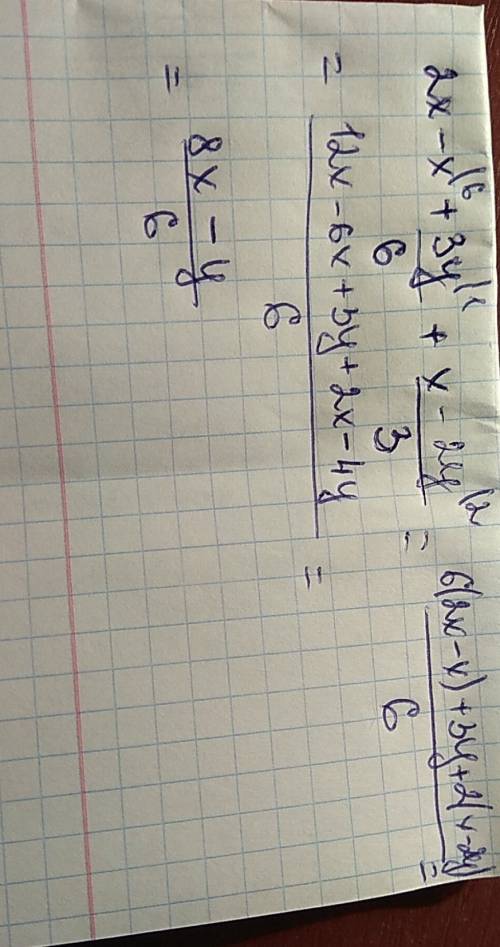 2x - x\6 + 3y\1/6 + x - 2y\2/3 = 6(2x - x) + 3y + 2(x - 2y)/6 =
= 12x - 6x + 3y + 2x - 4y/6 =
= 8x - y/6